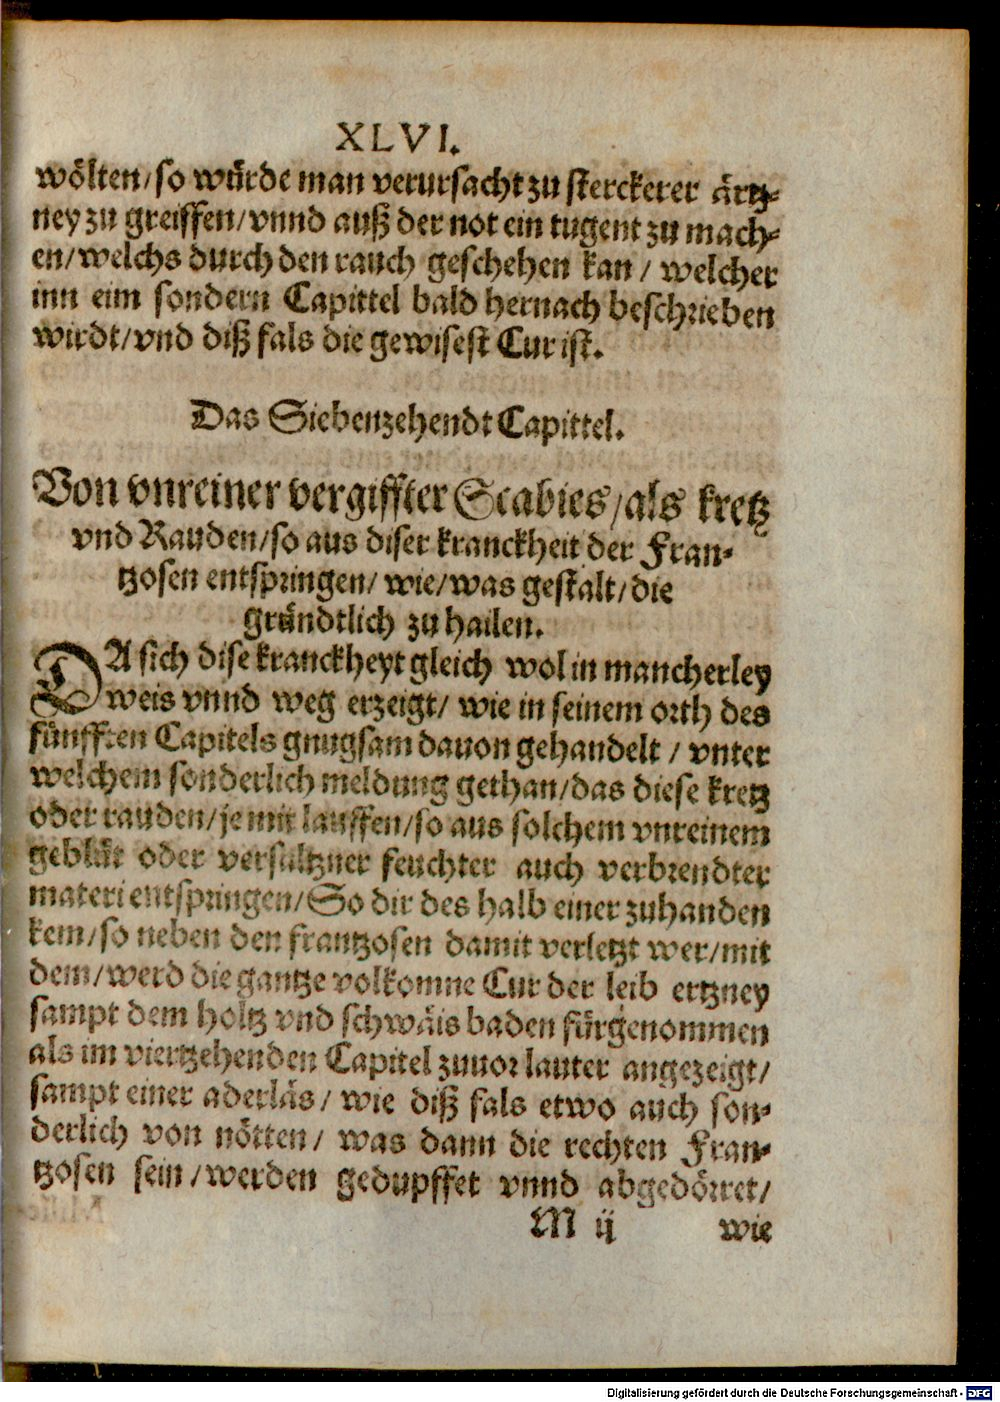 XLVI.
wölten/so würde man verursacht zu sterckerer ärtz-
ney zu greiffen/vnnd auß der not ein tugent zu mach-
en/welchs durch den rauch geschehen kan/ welcher
inn eim sondern Capittel bald hernach beschrieben
wirdt/vnd diß fals die gewisest Cur ist.
Das Siebenzehendt Capittel.
Von vnreiner vergiffter Scabies/als kretz
vnd Rauden/so aus diser kranckheit der Fran-
tzosen entspringen/ wie/was gestalt/die
gründtlich zu hailen.
DA sich dise kranckheyt gleich wol in mancherley
weis vnnd weg erzeigt/ wie in seinem orth des
fünfften Capitels gnugsam dauon gehandelt / vnter
welchem sonderlich meldung gethan/das diese kretz
oder rauden/je mit lauffen/so aus solchem vnreinem
geblüt oder versültzner feuchter auch verbrendter
materi entspringen/So dir des halb einer zuhanden
kem/so neben den frantzosen damit verletzt wer/mit
dem/werd die gantze volkomne Cur der leib ertzney
sampt dem holtz vnd schwäis baden fürgenommen
als im viertzehenden Capitel zuuor lauter angezeigt/
sampt einer aderläs/ wie diß fals etwo auch son-
derlich von nötten/ was dann die rechten Fran-
tzosen sein/werden gedupffet vnnd abgedörret/
M ij wie
Digitalisierung gefördert durch die Deutsche Forschungsgemeinschaft - DFG